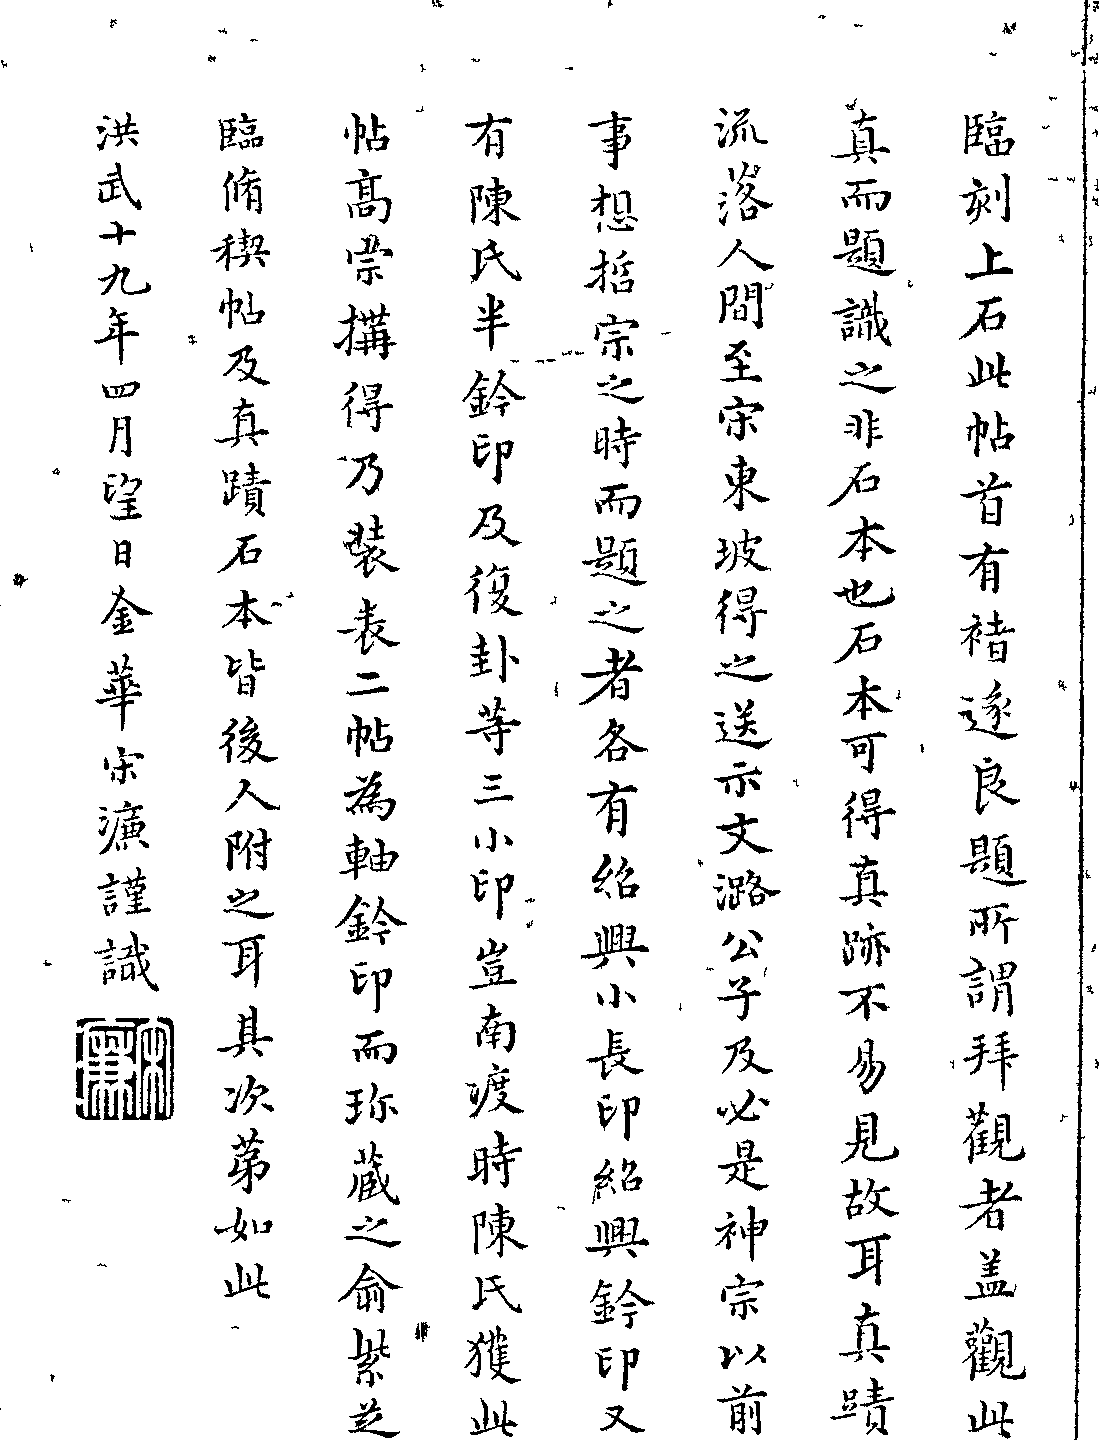 臨刻上石此帖首有褚遂良題所謂拜觀者盖觀此
真而題識之非石本也石本可得真跡不易見故耳真蹟
流落人間至宋東坡得之送示文潞公子及必是神宗以前
事想哲宗之時而題之者各有紹興小長印紹興鈐印又
有陳氏半鈐印及復卦等三小印豈南渡時陳氏獲此
帖高宗搆得乃裝表二帖為軸鈐印而珎蔵之俞紫芝
臨脩稧帖及真蹟石本皆後人附之耳其次苐如此
洪武十九年四月望日金華宋濂謹識
宋濂